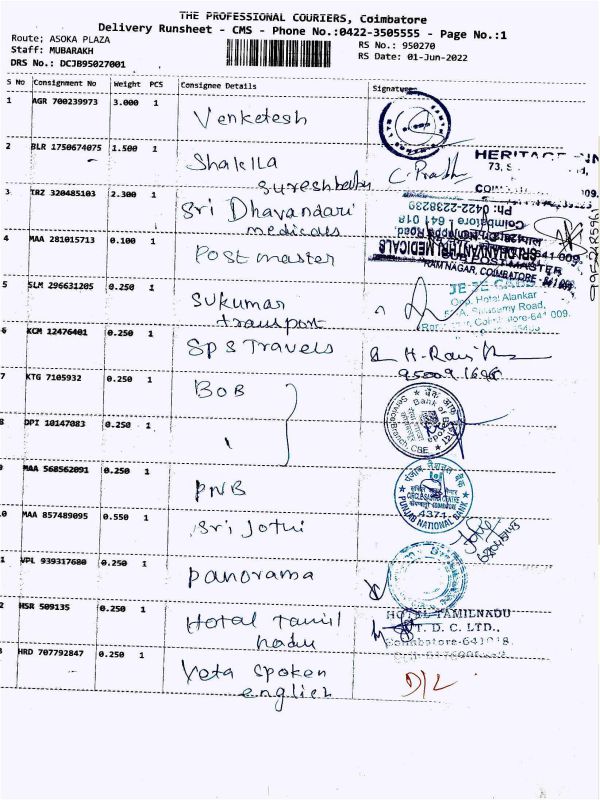 THE PROFESSIONAL COURIERS, Coimbatore
Delivery Runsheet - CMS - Phone No.:0422-3505555 - Page No.:1
Route; ASOKA PLAZA
RS No.: 950270
Staff: MUBARAKH
RS Date: 01-Jun-2022
DRS No.: DCJB95027001
S No Consignment No Weight PCS Consignee Details Signature
1 AGR 700239973 3.000 1 Venketesh
2 BLR 1750674075 1.500 1 Shakila
Sureshbabu
HERITAGE INN
73,
3 TRZ 320485103 2.300 1 Sri Dhavandari
medicals
Ph: 0422-2238239
Coimbatore 641 018
SRI DHANVANTHRI MEDICALS
4 MAA 281015713 0.100 1 Post master
SUB POSTMASTER
RAM NAGAR, COIMBATORE
5 SLM 296631205 0.250 1 Sukumar
transport
Opp. Hotel Alankar
6 KCM 12476401 0.250 1 SPS Travels
95009 1696
7 KTG 7105932 0.250 1 BOB
Bank of Baroda
8 DPI 10147083 0.250 1
9 MAA 568562091 0.250 1 PNB
पंजाब नैशनल बैंक
PUNJAB NATIONAL BANK
4374
0 MAA 857489095 0.550 1 Sri Jothi
1 VPL 939317680 0.250 1 panorama
2 HSR 509135 0.250 1 Hotal Tamil
nadu
HOTEL TAMILNADU
T. D. C. LTD.,
Coimbatore-641 018.
3 HRD 707792847 0.250 1 Veta spoken
englier
D/L